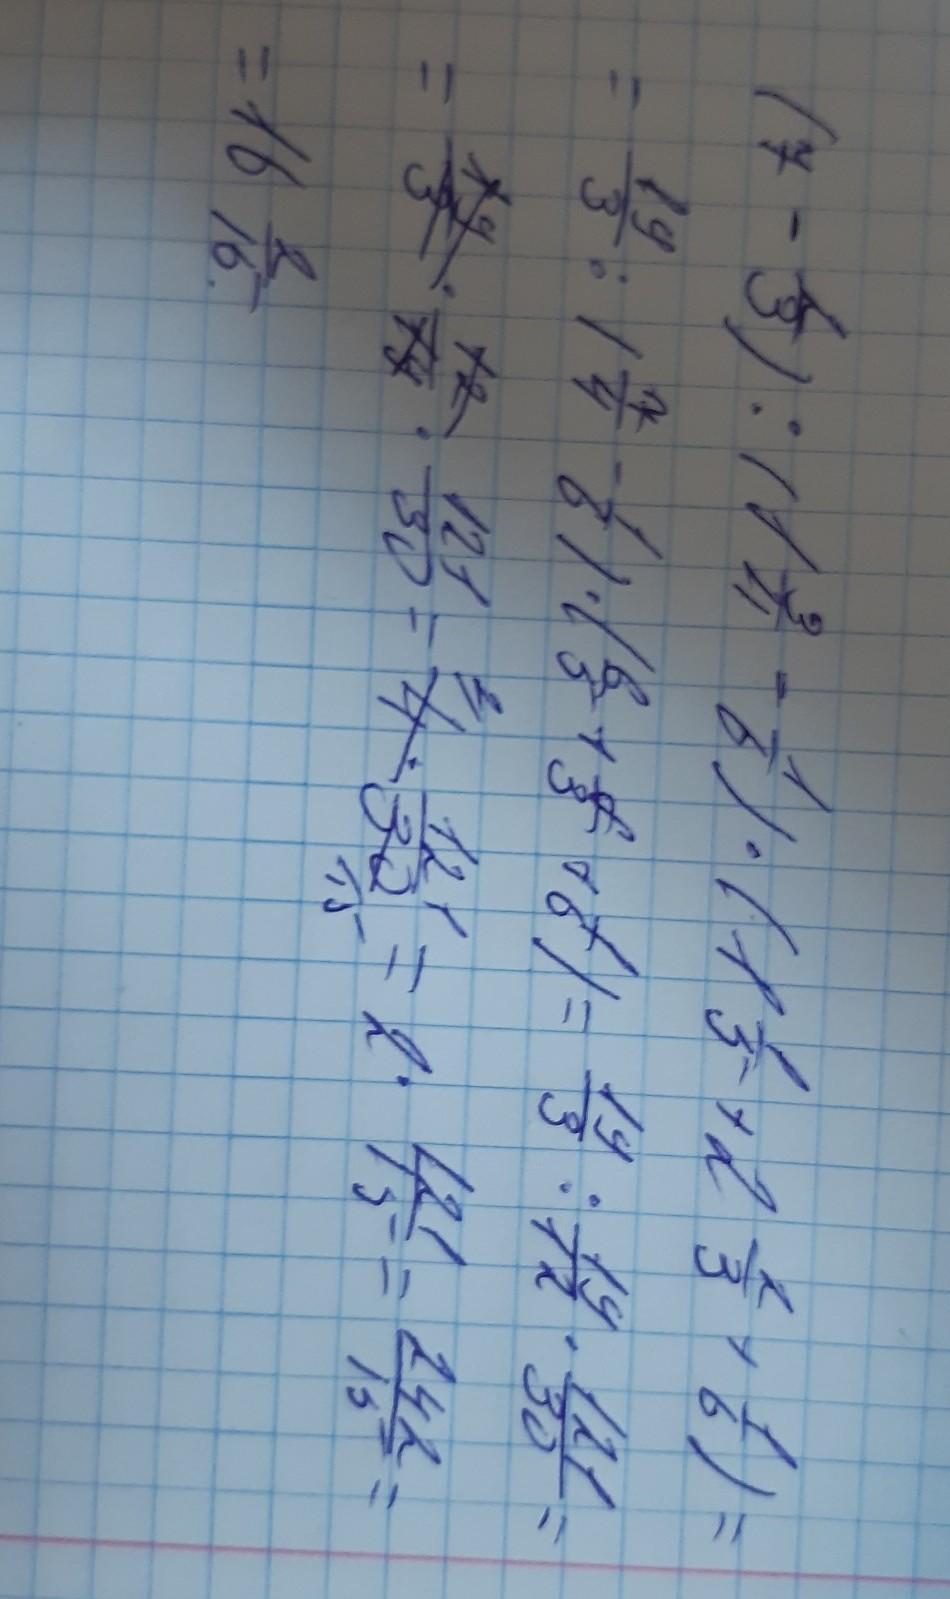 (7 - 2/3) : (1 3/4 - 1/6) · (1 1/5 + 2 2/3 + 1/6) =
= 19/3 : (7/4 - 1/6) · (6/5 + 8/3 + 1/6) = 19/3 : 19/12 · 121/30 =
= 19/3 · 12/19 · 121/30 = 4 · 121/30 = 2 · 121/15 = 242/15 =
= 16 2/15